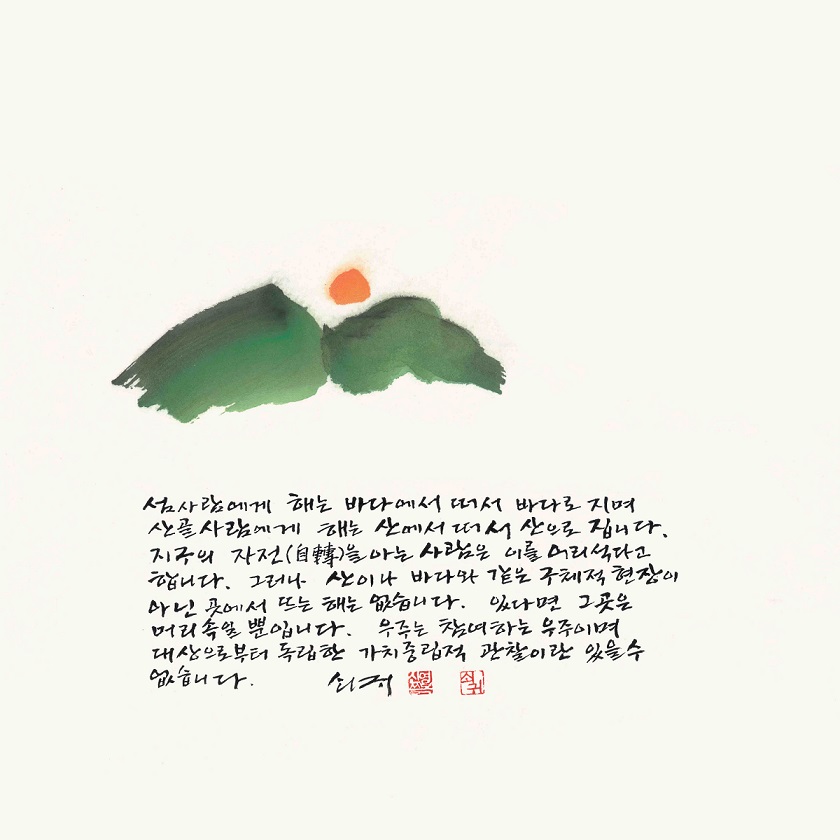 섬사람에게 해는 바다에서 떠서 바다로 지며
산골사람에게 해는 산에서 떠서 산으로 집니다.
지구의 자전(自轉)을 아는 사람은 이를 어리석다고
합니다. 그러나 산이나 바다와 같은 구체적 현장이
아닌 곳에서 뜨는 해는 없습니다. 있다면 그곳은
머리속일 뿐입니다. 우주는 참여하는 우주이며
대상으로부터 독립한 가치중립적 관찰이란 있을수
없습니다. 쇠귀